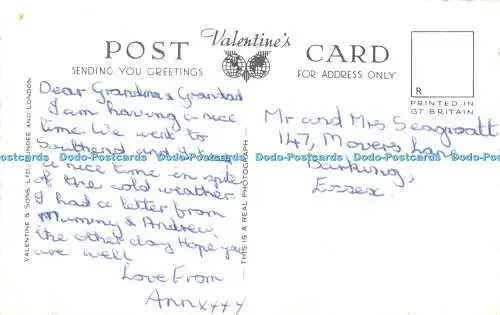 Valentine's
POST CARD
SENDING YOU GREETINGS
FOR ADDRESS ONLY
R
PRINTED IN
GT BRITAIN
VALENTINE & SONS, LTD., DUNDEE AND LONDON.
THIS IS A REAL PHOTOGRAPH
Dear Grandma & Grandad
I am having a nice
time. We went to
Southend and
a nice time in spite
of the cold weather.
I had a letter from
Mummy & Andrew,
the other day Hope you
are well
Love From
Annxxxx
Mr and Mrs Seagroatt
147, Movers Lane
Barking,
Essex.
Dodo-Postcards Dodo-Postcards Dodo-Postcards Dodo-Postcards Dodo-Postcards Dodo-Postcards